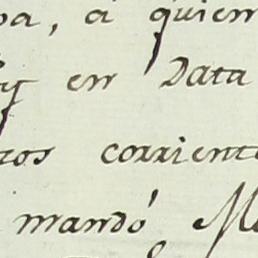 pa, á quien
en Data
ros corriente
mandó M